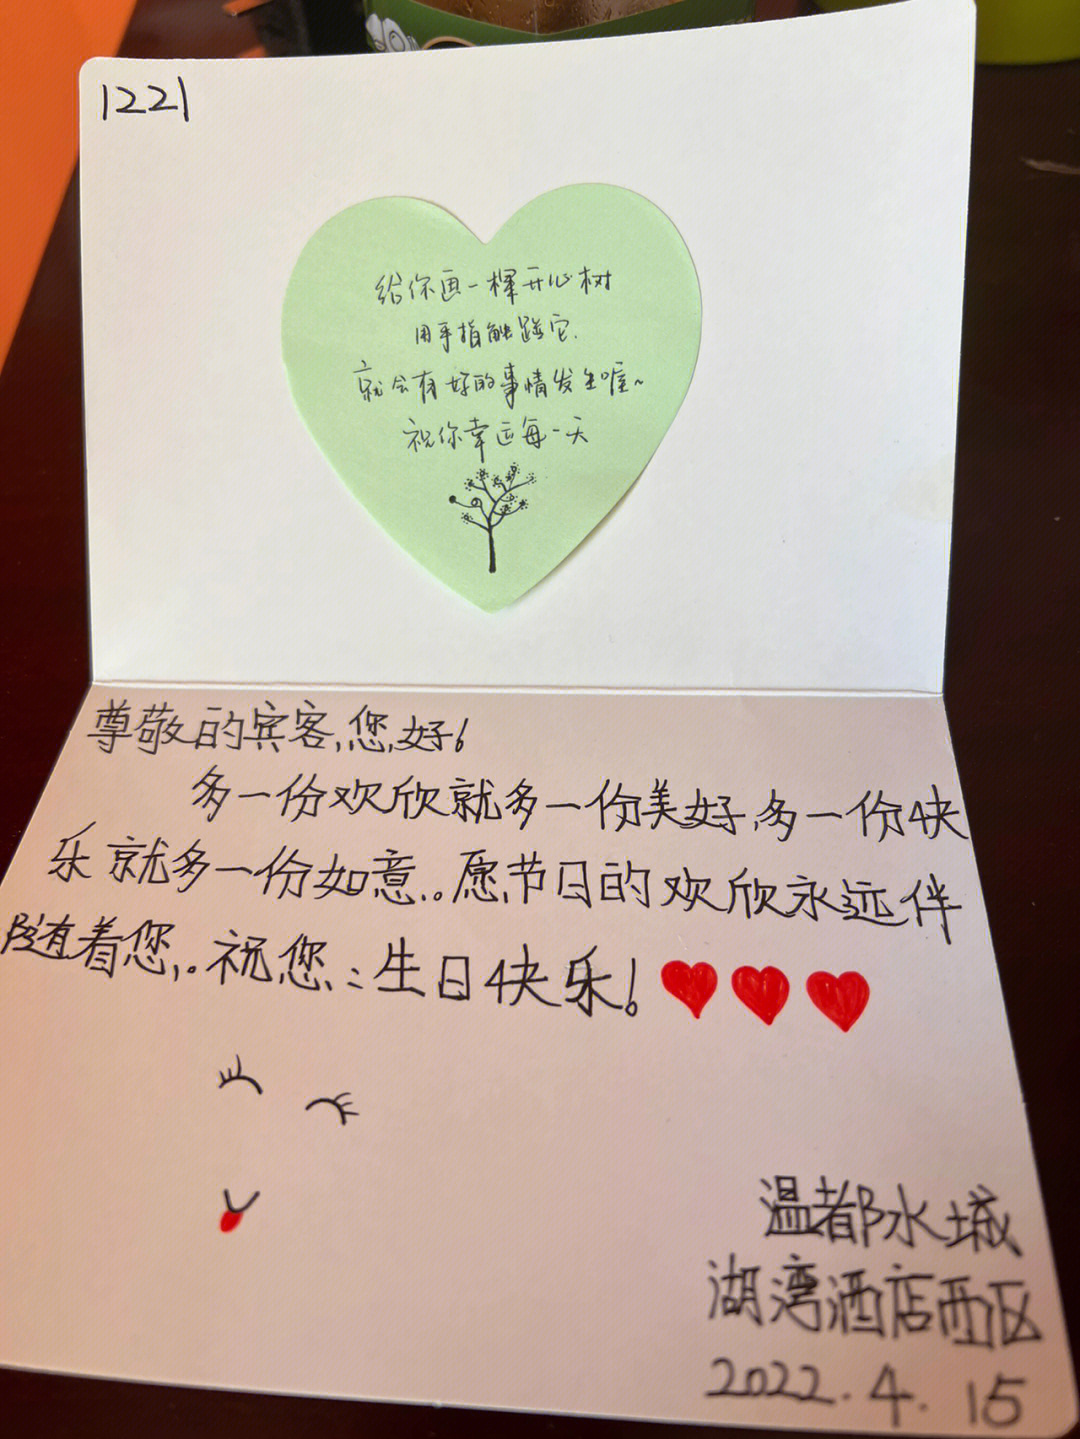 1221
给你画一棵开心树
用手指触碰它.
就会有好的事情发生喔~
祝你幸运每一天
尊敬的宾客,您好!
多一份欢欣就多一份美好,多一份快
乐就多一份如意。愿节日的欢欣永远伴
随着您。祝您:生日快乐!
温都水城
湖湾酒店西区
2022.4.15